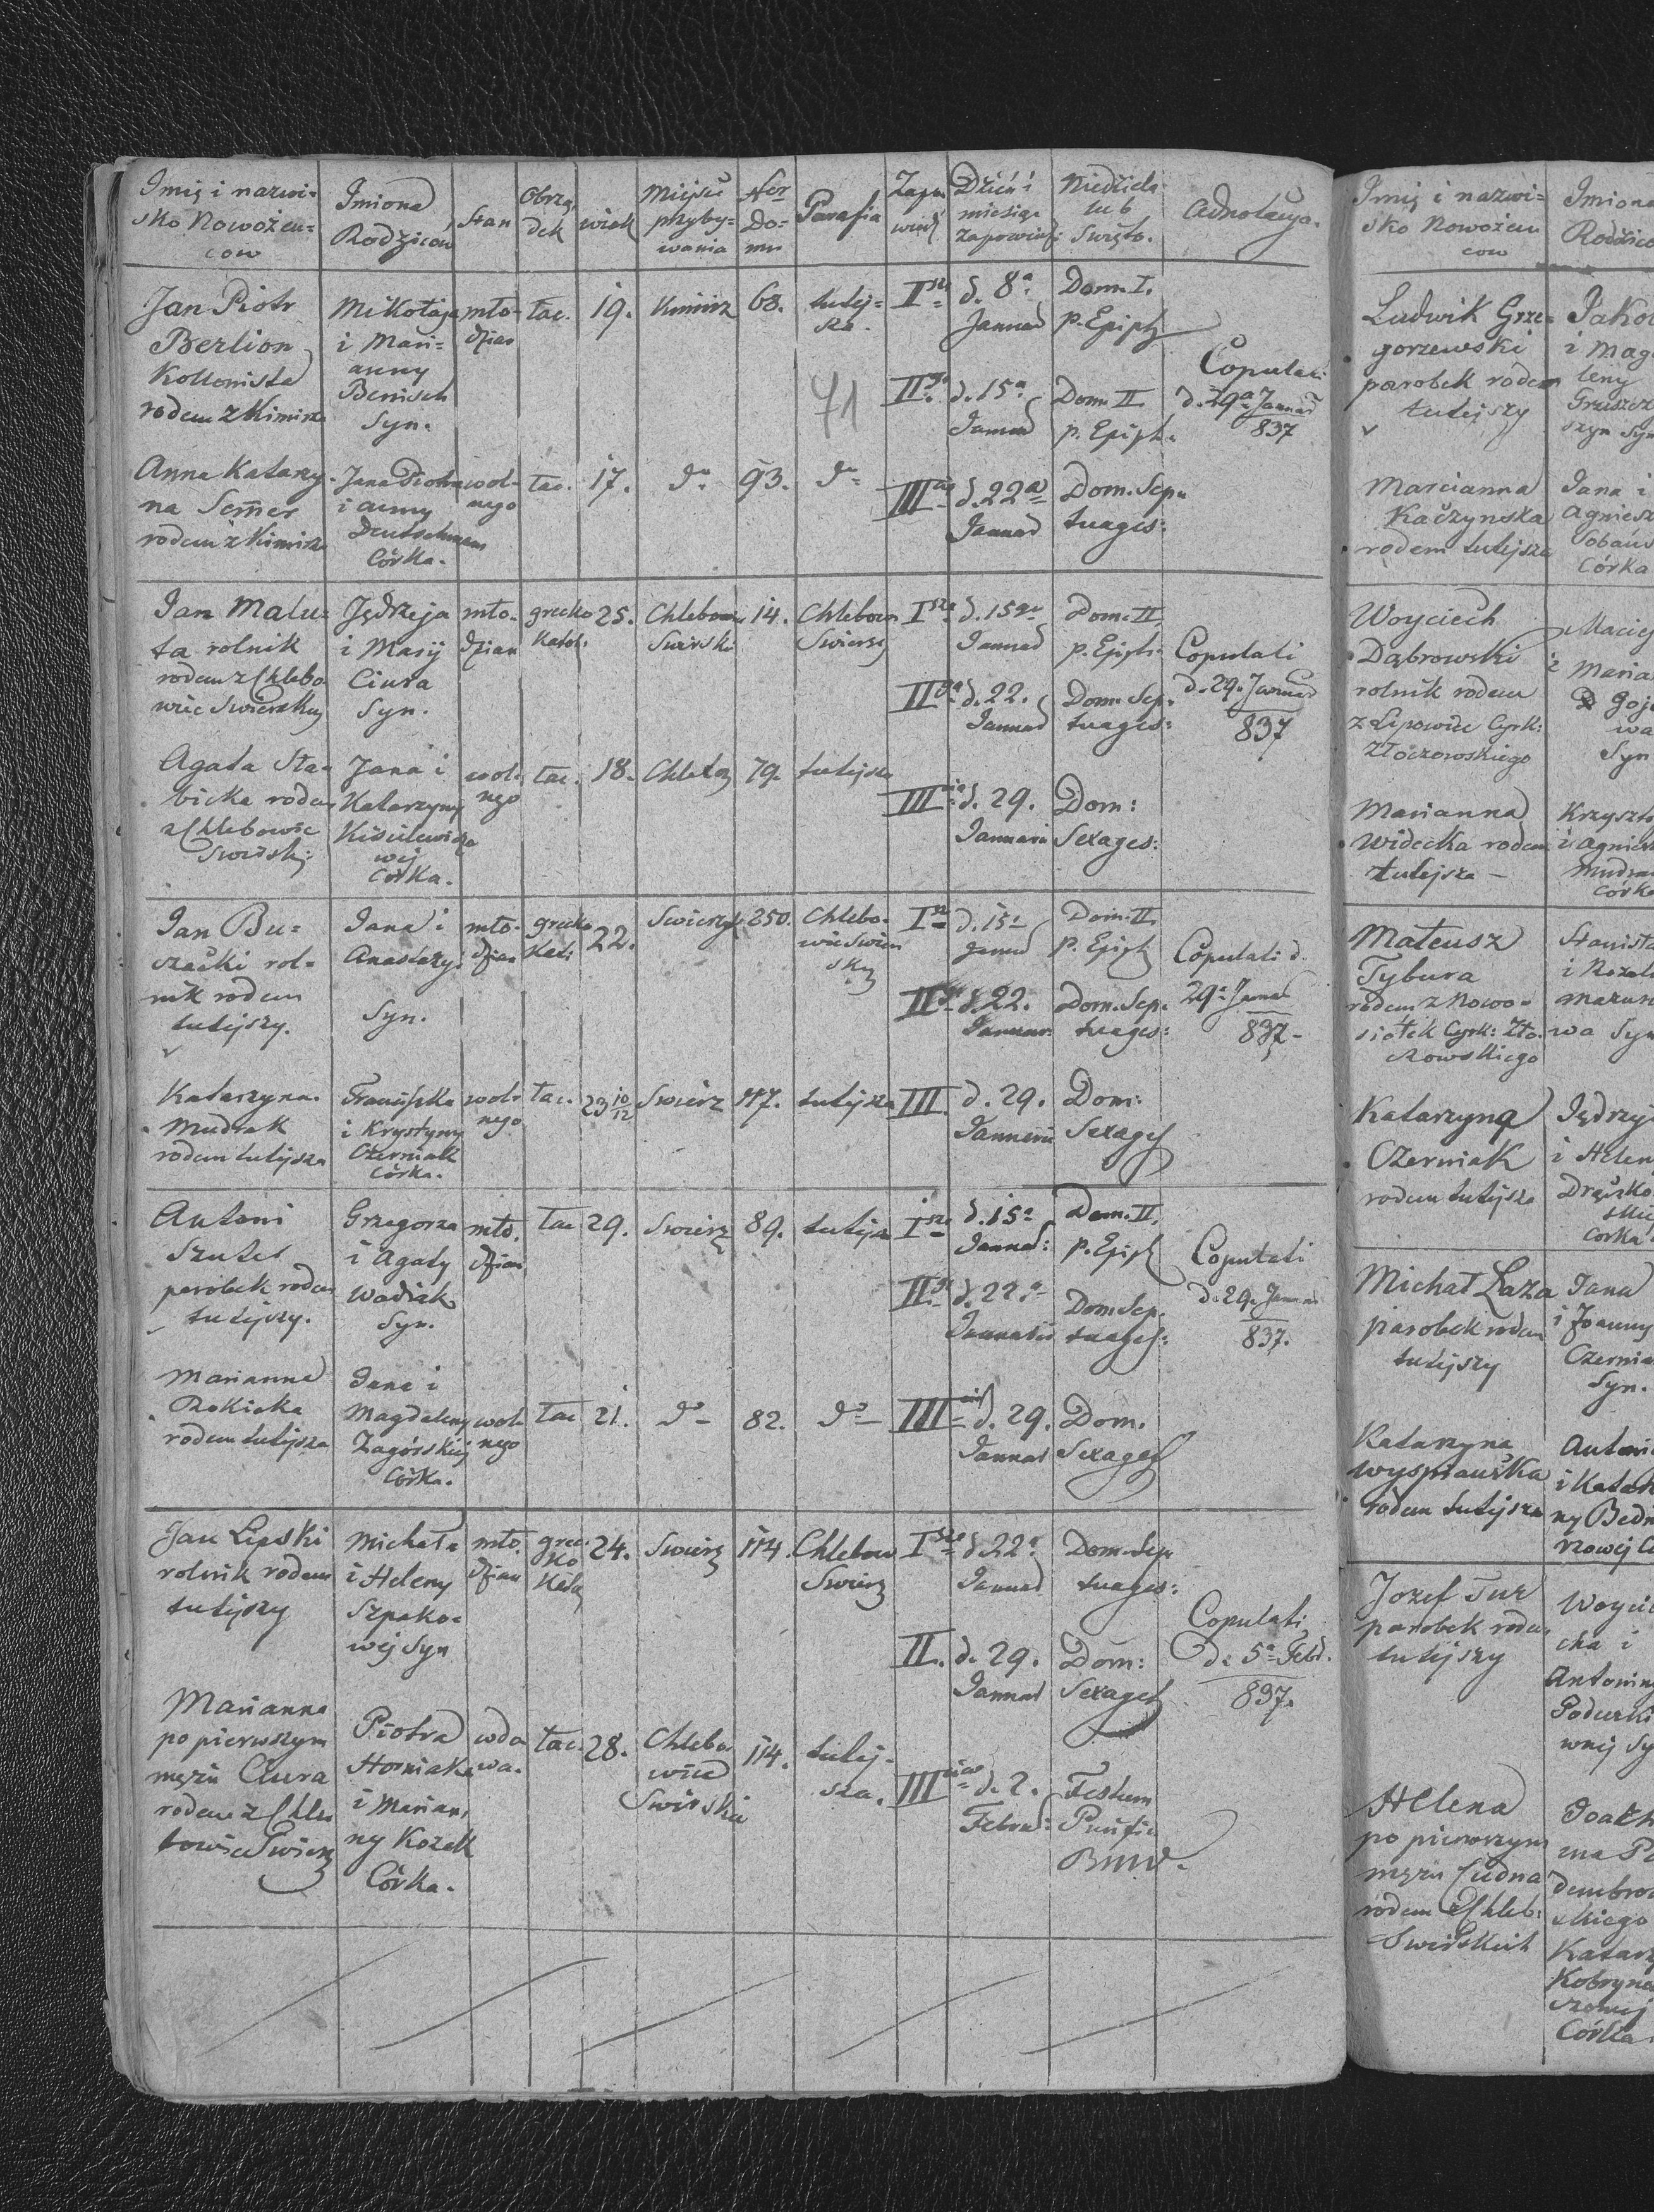 Imię i nazwi=
sko Nowożeń=
cow
Imiona
Rodziców
Stan
Obrzą
dek
wiek
Miejsce
przyby=
wania
Ner
Do=
mu
Parafia
Zapo
wiedź
Dzień i
miesiąc
zapowiedzi
Niedziela
lub
Święto.
Adnotacya.
Jan Piotr
Berlion
Kollonista
rodem z Kimirza
Mikołaja
i Mari=
anny
Benisch
Syn.
mło-
dzian
łac.
19.
Kimirz
68.
tutej=
sza.
I
d. 8a
Januar
Dom. I.
p. Epiph
71
II
d. 15a
Januar
Dom. II.
p. Epiph.
Copulati
d. 29a Januar
837
Anna Katarzy-
na Semer
rodem z Kimirza
Jana Piotra
i anny
Deutschman
Córka.
wol-
nego
łac.
17.
do
93.
do
III
d. 22a
Januar
Dom. Sep-
tuages:
Jan Malu=
ta rolnik
rodem z Chlebo
wic Swierskich
Jędrzeja
i Maryi
Ciura
Syn.
mło-
dzian
grecko
Katol:
25.
Chlebow
Swirski
14.
Chlebow
Swiersz
I
d. 15a
Januar
Dom. II.
p. Epiph.
II
d. 22.
Januar
Dom. Sep-
tuages:
Copulati
d. 29. Januar
837
Agata Sta-
bicka rodem
z Chlebowic
Swirski:
Jana i
Katarzyny
Kisilewi
wej
Córka.
wol-
nego
łac.
18.
Chleb
79.
tutejsza
III
d. 29.
Januarii
Dom:
Sexages:
Jan Bu=
czacki rol-
nik rodem
tutejszy.
Jana i
Anastazyi
Syn.
mło-
dzian
grecko
Kat:
22.
Swierz
250.
Chlebo-
wic Swier
skich
I
d. 15a
Januar
Dom. II.
p. Epiph
II
d. 22.
Januar:
Dom. Sep-
tuages:
Copulati d.
29a Januar
837-
Katarzyna
Mudrak
rodem tutejsza
Franciszka
i Krystyny
Czerniak
Córka.
wol-
nego
łac.
23 10/12
Swierz
117.
tutejsza
III.
d. 29.
Januarii
Dom:
Sexages
Antoni
Szulec
parobek rodem
tutejszy.
Grzegorza
i Agaty
Wadiak
Syn.
mło.
dzian
łac
29.
Swierz
89.
tutejsza
I
d. 15a
Januar:
Dom. II.
p. Epiph
II
d. 22a
Januarii
Dom. Sep.
tuages:
Copulati
d. 29a Januar
837.
Marianna
Rokicka
rodem tutejsza
Jana i
Magdaleny
Zagórskiej
Córka.
wol-
nego
łac
21.
do
82.
do
III
d. 29.
Januar
Dom.
Sexages
Jan Lipski
rolnik rodem
tutejszy
Michała
i Heleny
Szpako=
wej Syn
mło.
dzian
grec
ko
Kato
24.
Swierz
114.
Chlebow
Swierz
I
d. 22a
Januar
Dom. Sep
tuages:
II.
d. 29.
Januar
Dom:
Sexages
Copulati
d. 5a Febr.
837.
Marianna
po pierwszym
mężu Ciura
rodem z Chle
bowic Swierz
Piotra
Horniaka
i Marian,
ny Kozek
Córka.
wdo
wa.
łac.
28.
Chlebo
wice
Swirskie
114.
tutej-
sza.
III
d. 2.
Febru:
Festum
Purific
BMV.
Imię i nazwi=
sko Nowożeń
cow
Imiona
Rodzico
Ludwik Grze=
gorzewski
parobek rodem
tutejszy
Jakob
i Mag
leny
Gruszcz
szyn Syn
Marcianna
Kaczynska
rodem tutejsza
Jana i
Agniesz
Sobańs
Córka
Woyciech
Dąbrowski
rolnik rodem
z Lipowiec Cyrk:
Złoczowskiego
Maciej
i Maria
Goj
wa
Syn
Marianna
Widecka rodem
tutejsza -
Krzyszto
i Agniesz
Mudra
Córka
Mateusz
Tybura
rodem z Nowo-
siołek Cyrk: Zło.
czowskiego
Stanisła
i Rozal
Mazur
wa Syn
Katarzyna
Czerniak
rodem tutejsza
Jędrzej
i Helen
Drączko
skiej
Córka
Michał Łaza
parobek rodem
tutejszy
Jana
i Joanny
Czernia
Syn.
Katarzyna
Wyspiańska
rodem tutejsza
Antoni
i Katar
ny Bedn
rzowej C
Jozef Tur
parobek rodem
tutejszy
Woycie
cha i
Antonin
Podurki
wnej Sy
Helena
po pierwszym
mężu Cudna
rodem z Chleb:
Swirskich
Joach
ma P
Dembro
skiego
Katarz
Kobryno
szowej
Córka.